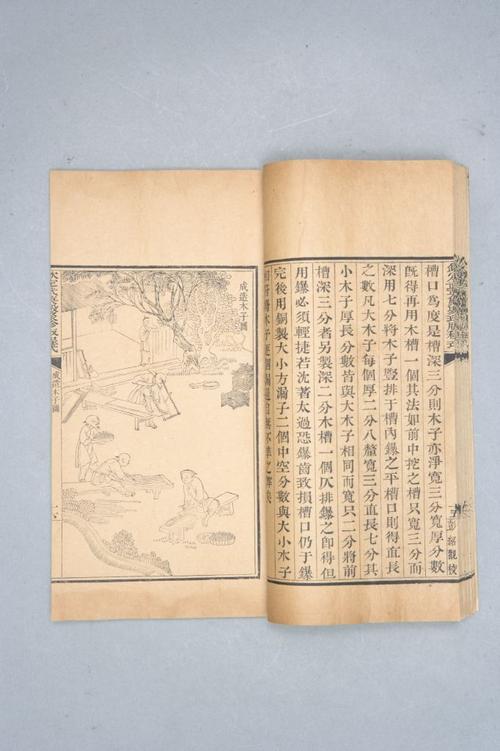 欽定武英殿聚珍版程式
彭紹觀校
槽口為度是槽深三分則木子亦淨寬三分寬厚分數
既得再用木槽一個其法如前中挖之槽只寬三分而
深用七分將木子豎排于槽內鑤之平槽口則得直長
之數凡大木子每個厚二分八釐寬三分直長七分其
小木子厚長分數皆與大木子相同而寬只二分將前
槽深三分者另製深二分木槽一個仄排鑤之即得但
用鑤必須輕捷若沈著太過恐鑤齒致損槽口仍于鑤
完後用銅製大小方漏子二個中空分數與大小木子
相符將木子逐個漏過自無不準之弊矣
成造木子圖
成造木子圖